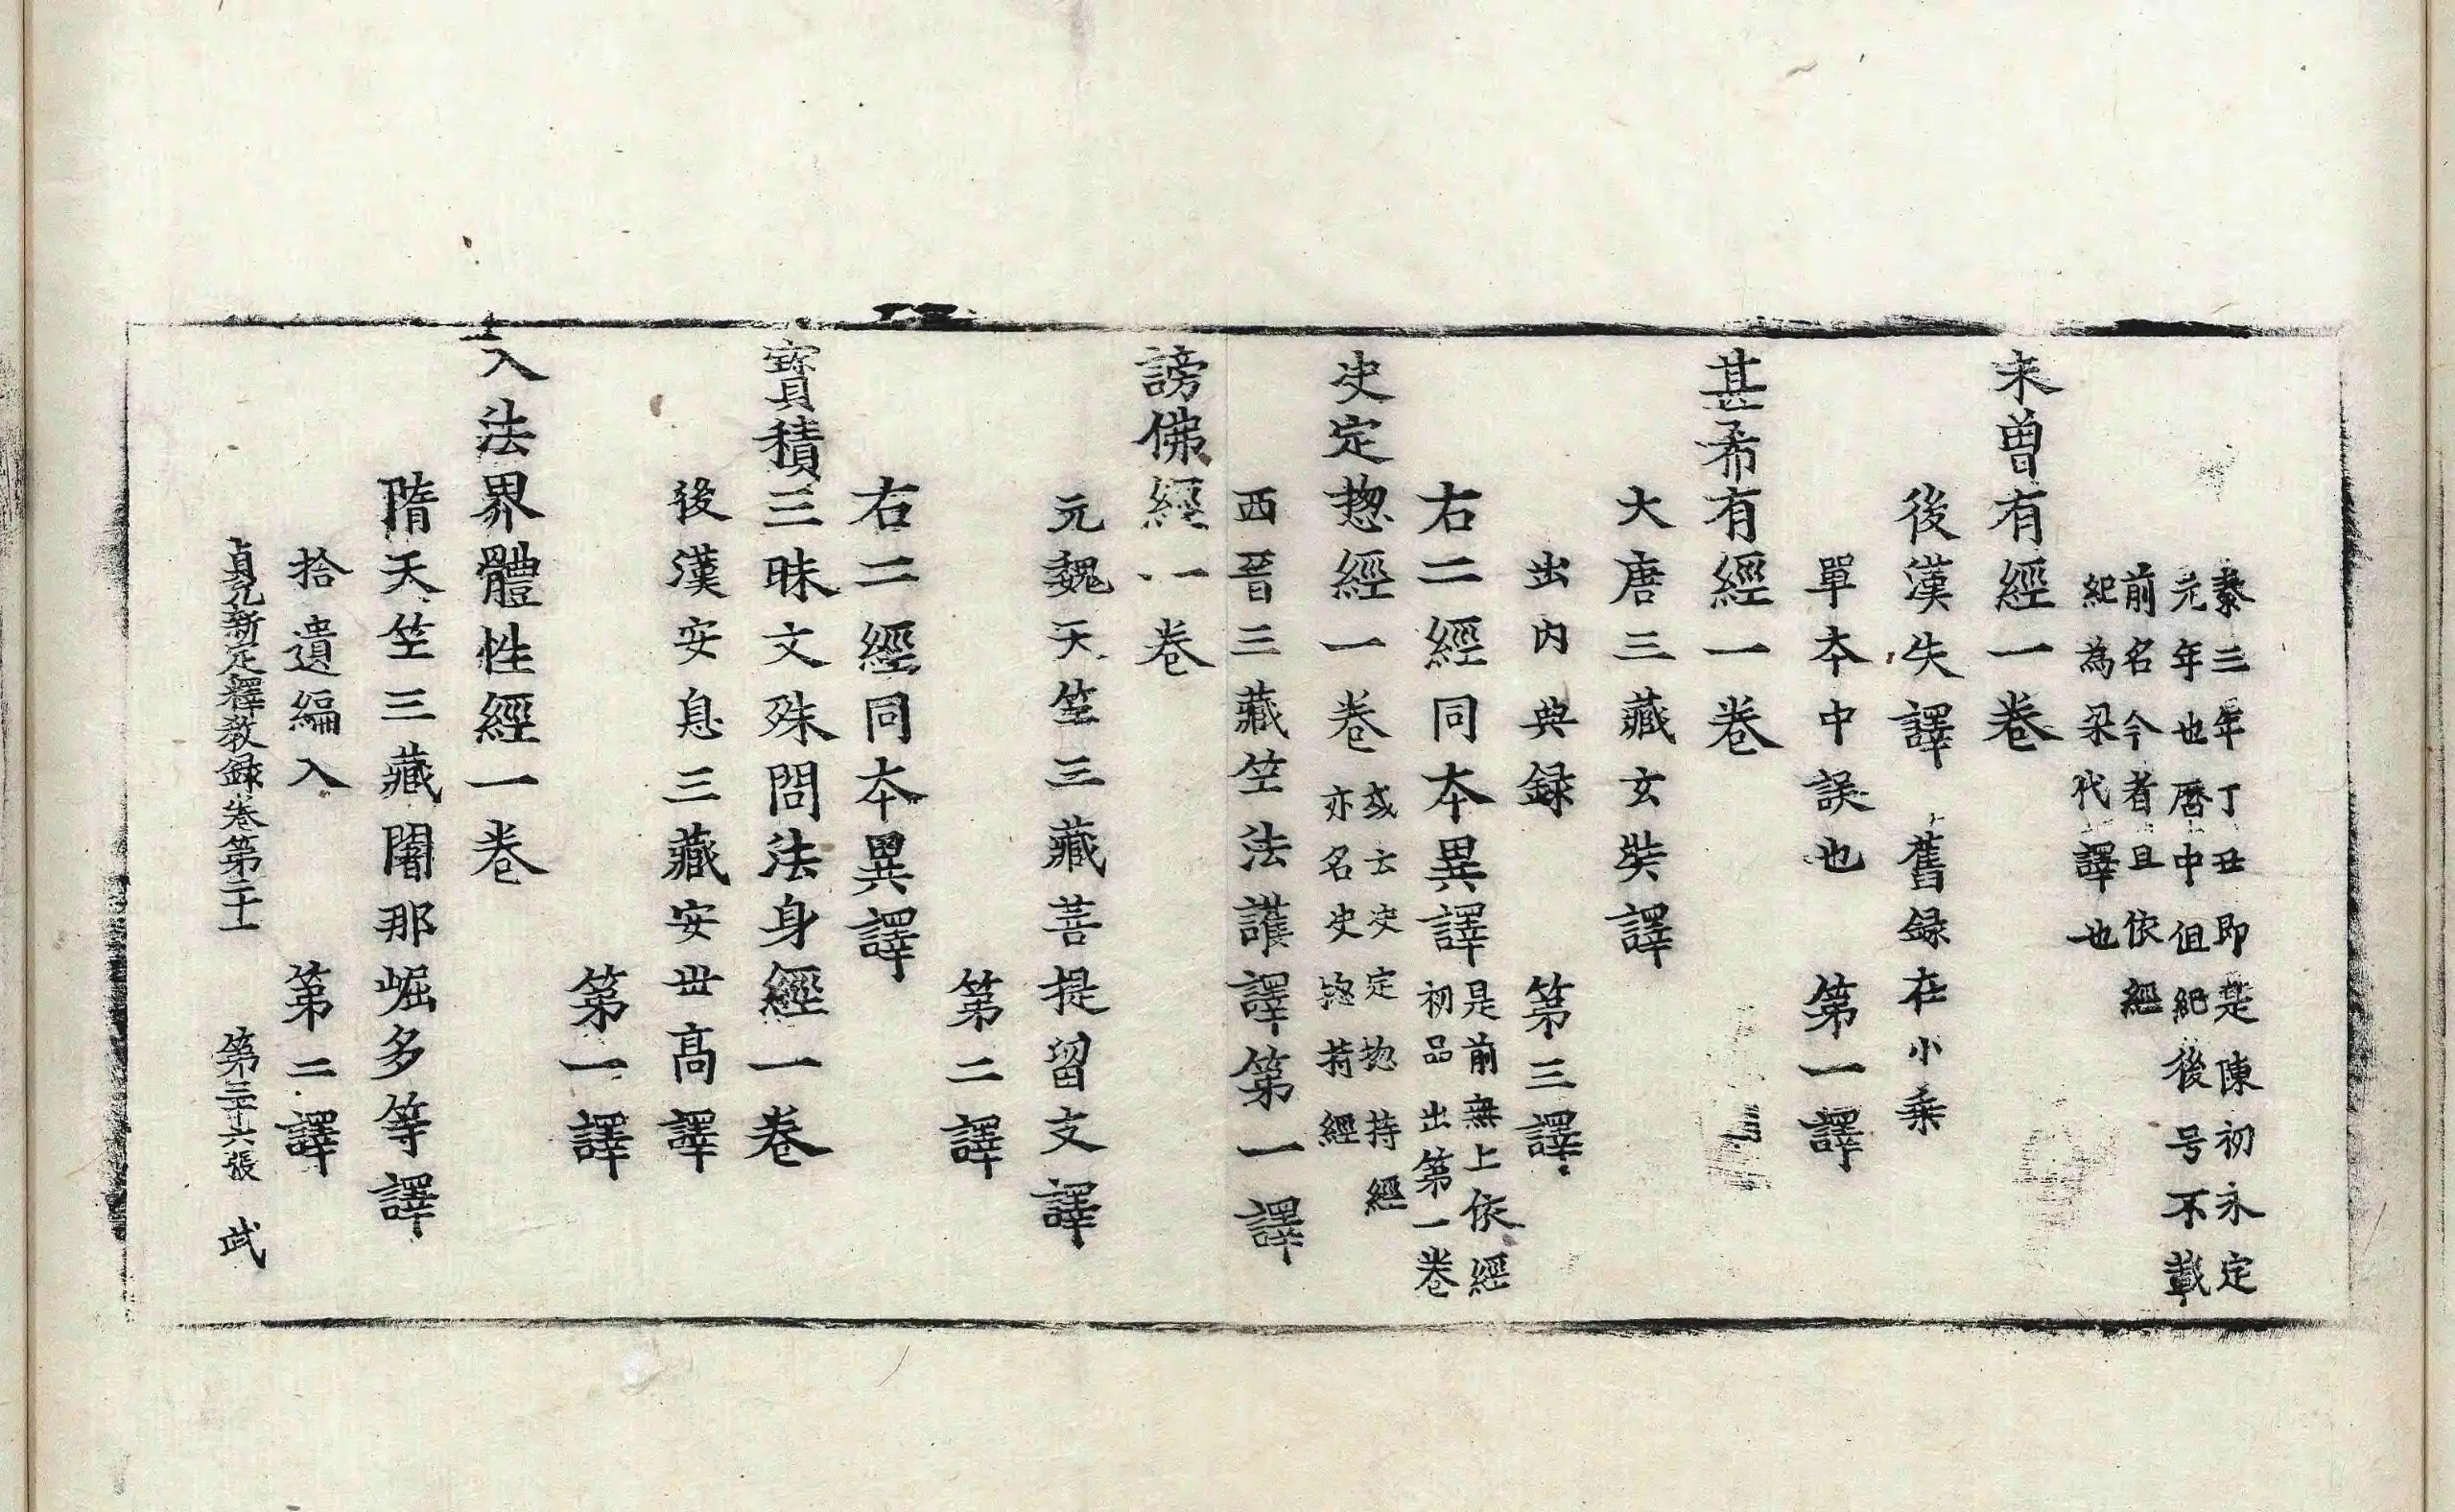 泰三年丁丑即是陳初永定
元年也曆中但紀後号不載
前名今者且依經
紀為梁代譯也
未曾有經一卷
後漢失譯 舊録在小乗
單本中誤也 第一譯
甚希有經一卷
大唐三藏玄奘譯
出内典録 第三譯
右二經同本異譯 是前無上依經
初品出第一卷
決定惣經一卷 或云決定惣持經
亦名決惣持經
西晉三藏竺法護譯第一譯
謗佛經一卷
元魏天竺三藏菩提留支譯
第二譯
右二經同本異譯
寶積三昧文殊問法身經一卷
後漢安息三藏安世髙譯
第一譯
入法界體性經一卷
隋天竺三藏闍那崛多等譯
拾遺編入 第二譯
貞元新定釋教録卷第二十一 第三十六張 武